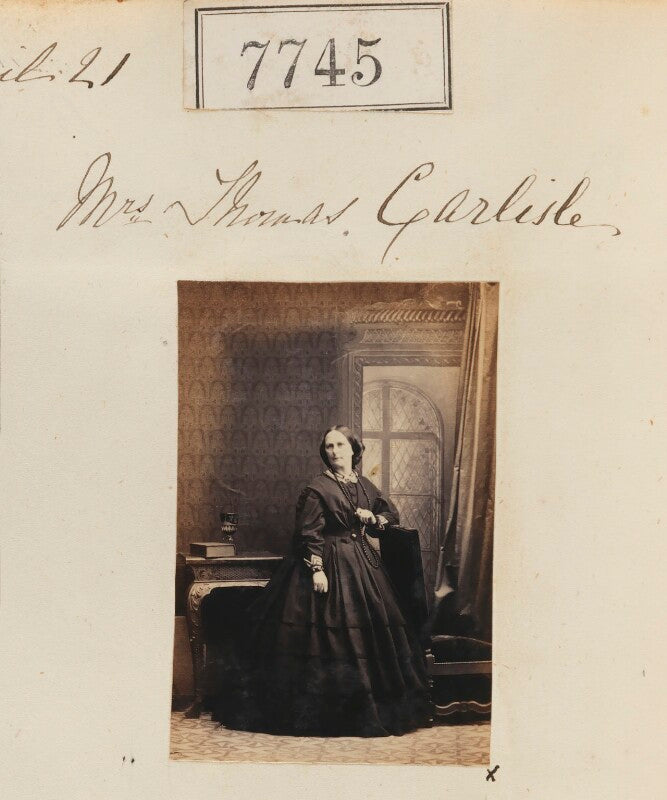 7745
21
Mrs Thomas Carlisle
x